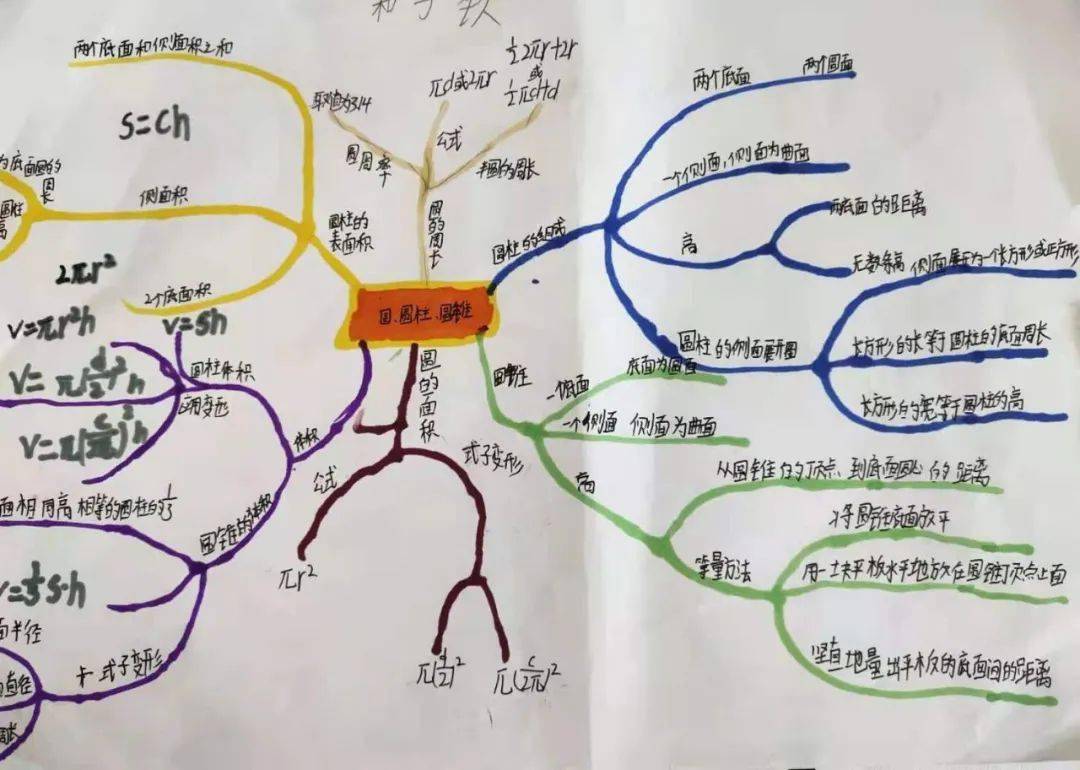 两个底面和侧面积之和
S=Ch
为底面圆的
周长
圆柱
高
侧面积
圆柱的
表面积
2πr²
2个底面积
取值为3.14
圆周率
πd或2πr
公式
½2πr+2r
或
½πd+d
半圆的周长
圆的周长
圆、圆柱、圆锥
圆柱的组成
两个底面
两个圆面
一个侧面,侧面为曲面
高
两底面的距离
无数条高
圆柱的侧面展开图
侧面展开为一个长方形或正方形
长方形的长等于圆柱的底面周长
长方形的宽等于圆柱的高
V=πr²h
V=Sh
V=π(d/2)²h
V=π(C/2π)²h
圆柱体积
应用变形
体积
圆锥的体积
面相同高相等的圆柱的⅓
V=⅓S·h
面半径
直径
周长
式子变形
圆的面积
公式
πr²
式子变形
π(d/2)²
π(C/2π)²
圆锥
一个底面
底面为圆面
一个侧面
侧面为曲面
高
从圆锥的顶点到底面圆心的距离
等量方法
将圆锥底面放平
用一块平板水平地放在圆锥顶点上面
竖直地量出平板的底面间的距离